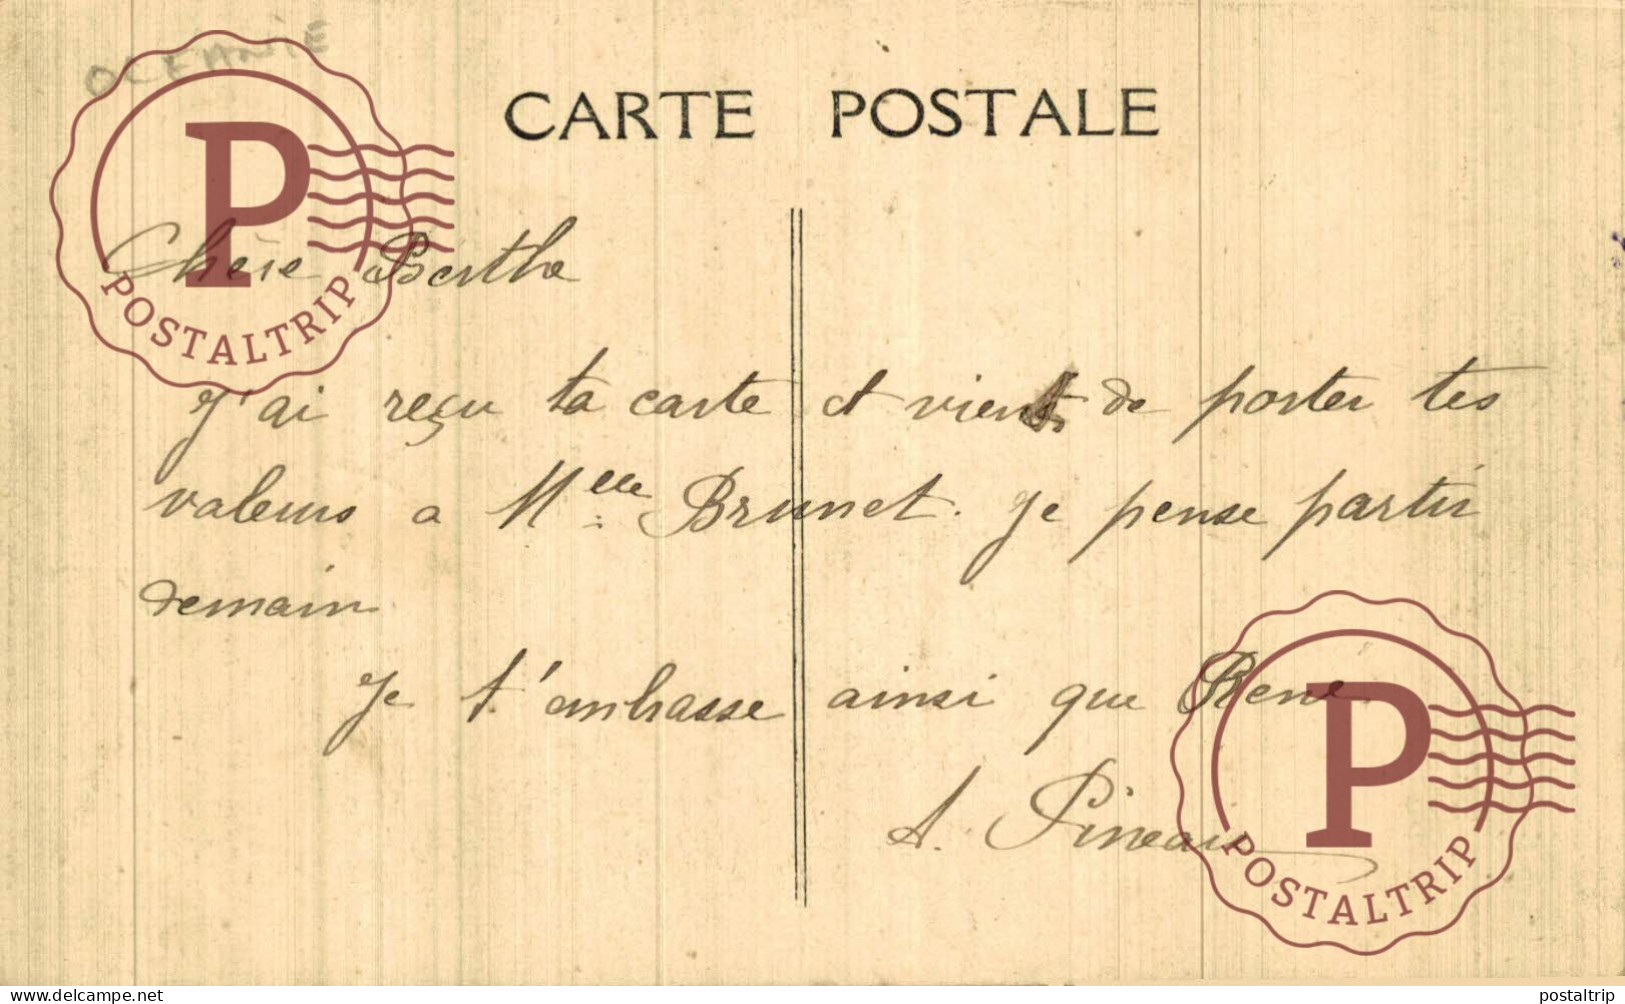 OCEANIE
CARTE POSTALE
Chère Berthe
J'ai reçu ta carte et viens de porter tes
valeurs a Melle Brunet. Je pense partir
demain
Je t'embrasse ainsi que René
A. Pineau
POSTALTRIP
POSTALTRIP
Visit www.delcampe.net
postaltrip